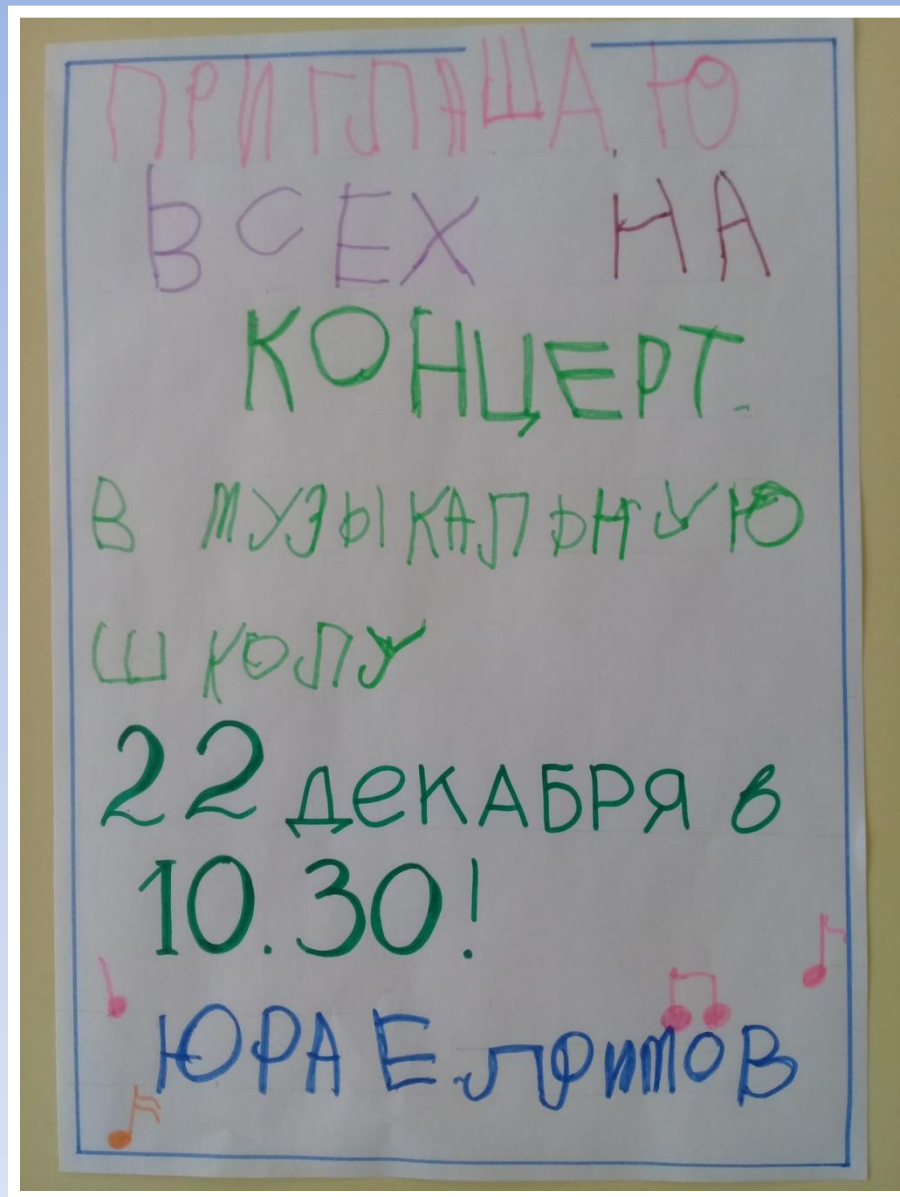 ПРИГЛАШАЮ
ВСЕХ НА
КОНЦЕРТ
В МУЗЫКАЛЬНУЮ
ШКОЛУ
22 декабря в
10.30!
ЮРА ЕЛФИТОВ